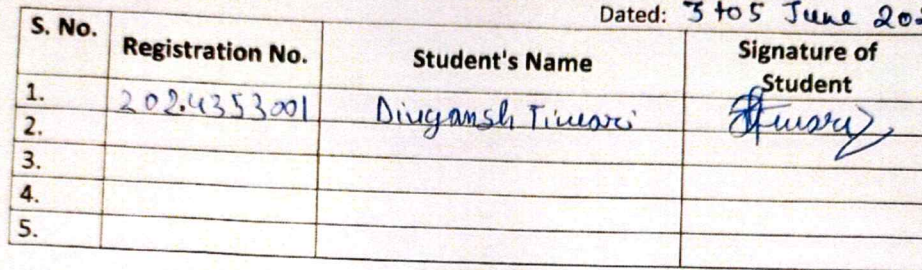 Dated: 3 to 5 June 202
S. No. Registration No. Student's Name Signature of Student
1. 2024353001 Divyansh Tiwari Tiwari
2.
3.
4.
5.